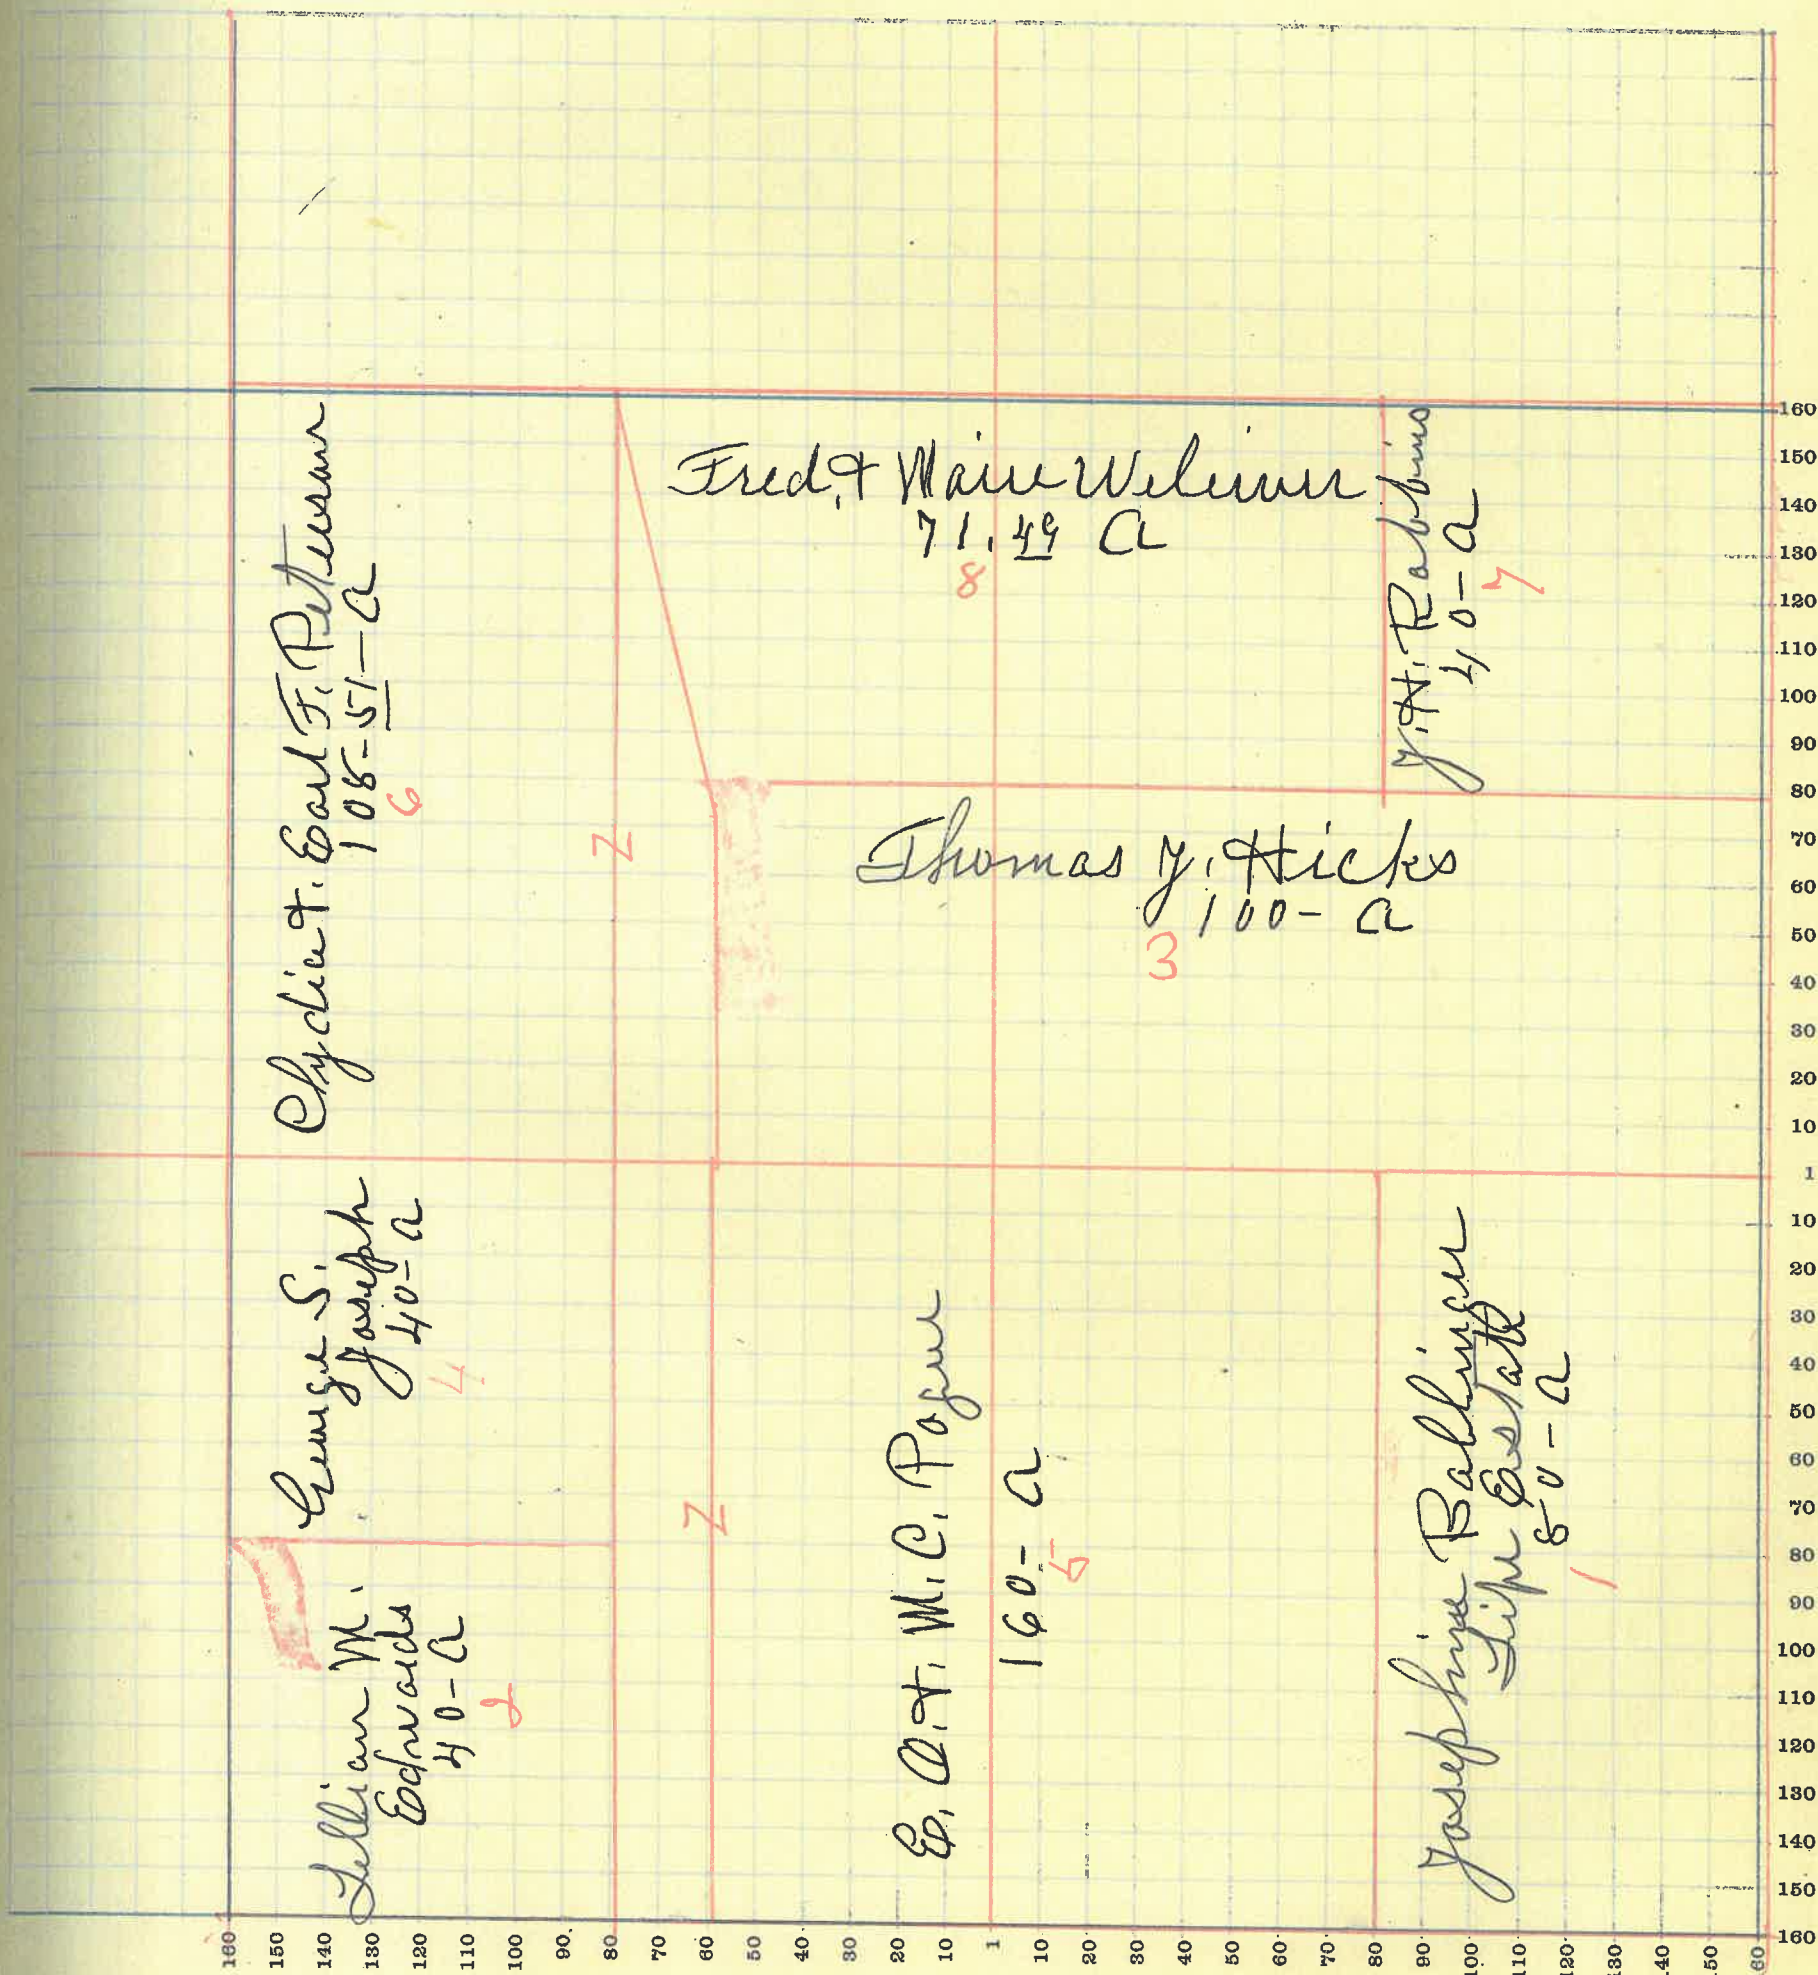 Fred, & Marie Welimer
71.49 a
8
Y. H. Robbins
40-a
7
Clydia &. Earl F. Peterson
108-51-a
6
Z
Thomas Y. Hicks
100- a
3
George S.
Joseph
40-a
4
Lillian M.
Edwards
40-a
2
Z
E. O. &. M. C. Pogue
160- a
5
Josephine Ballinger
Life Estate
80-a
1
160
150
140
130
120
110
100
90
80
70
60
50
40
30
20
10
1
10
20
30
40
50
60
70
80
90
100
110
120
130
140
150
160
160
150
140
130
120
110
100
90.
80
70
60
50
40
30
20
10
1
10
20
30
40
50
60
70
80
90
100
110
120
130
140
150
60